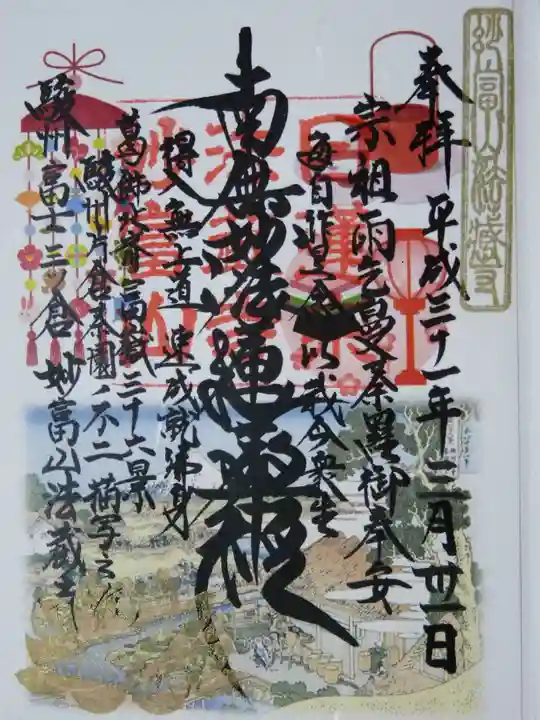 妙富山法蔵寺
奉拝 平成三十一年三月卅一日
宗祖雨乞曼荼羅御奉安
毎自作是念以我令衆生
南無妙法蓮華経
得入無上道速成就佛身
葛飾北斎富嶽三十六景
駿州片倉茶園ノ不二
駿州富士三ツ倉 妙富山法蔵寺
日蓮宗
妙富山